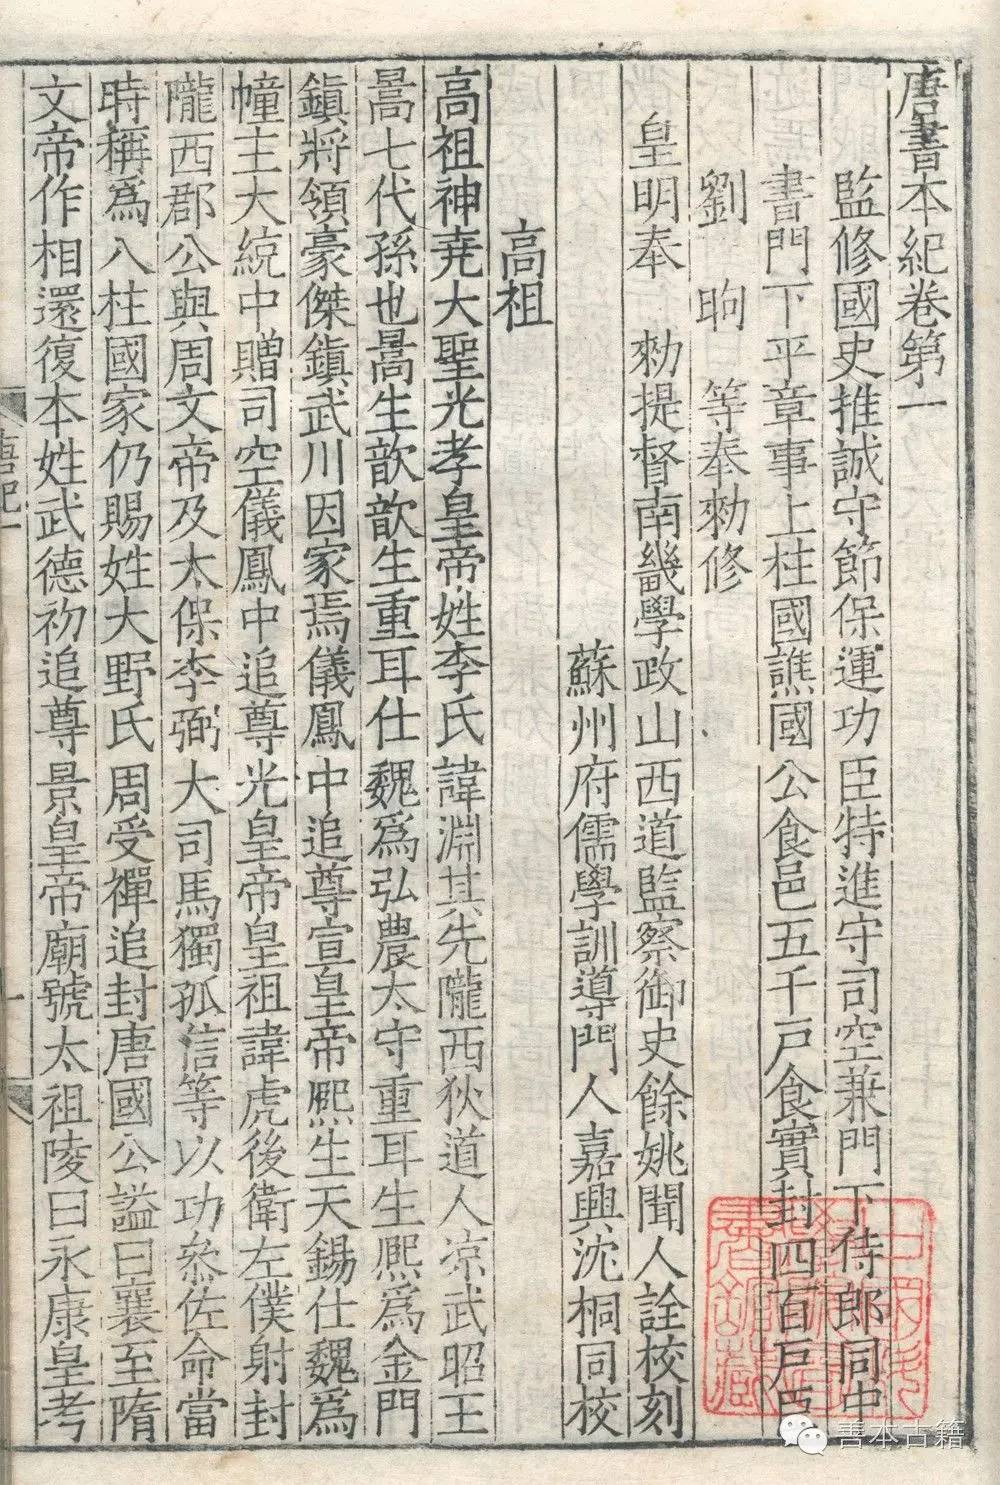 唐書本紀卷第一
監修國史推誠守節保運功臣特進守司空兼門下侍郎同中
書門下平章事上柱國譙國公食邑五千戶食實封四百戶臣
劉昫等奉勑修
皇明奉勑提督南畿學政山西道監察御史餘姚聞人詮校刻
蘇州府儒學訓導門人嘉興沈桐同校
高祖
高祖神尭大聖光孝皇帝姓李氏諱淵其先隴西狄道人凉武昭王
暠七代孫也暠生歆歆生重耳仕魏爲弘農太守重耳生熈爲金門
鎮將領豪傑鎮武川因家焉儀鳳中追尊宣皇帝熈生天錫仕魏爲
幢主大統中贈司空儀鳳中追尊光皇帝皇祖諱虎後衛左僕射封
隴西郡公與周文帝及太保李弼大司馬獨孤信等以功叅佐命當
時稱爲八柱國家仍賜姓大野氏周受禪追封唐國公謚曰襄至隋
文帝作相還復本姓武德初追尊景皇帝廟號太祖陵曰永康皇考
唐紀一
一
善本古籍